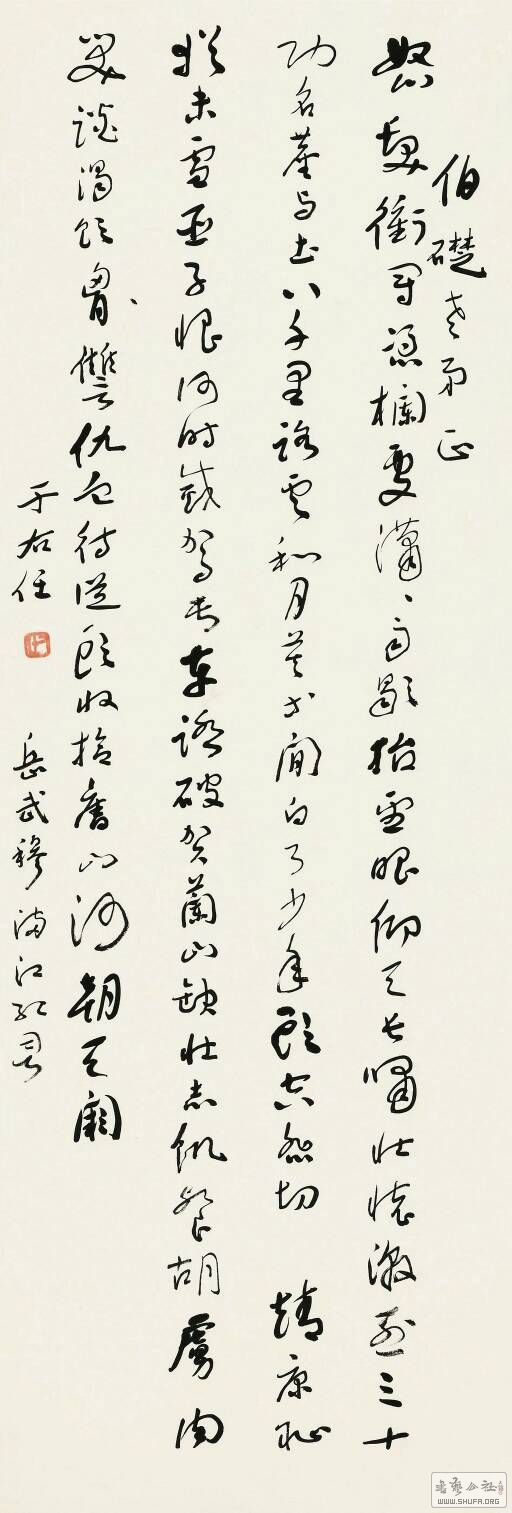 伯礎老弟正
怒髮衝冠憑欄處瀟瀟雨歇抬望眼仰天長嘯壯懷激烈三十
功名塵與土八千里路雲和月莫等閒白了少年頭空悲切 靖康恥
猶未雪臣子恨何時滅駕長車踏破賀蘭山缺壯志飢餐胡虜肉
笑談渴飲讐仇血待從頭收拾舊山河朝天闕
于右任 岳武穆滿江紅詞
書藝公社
WWW.SHUFA.ORG